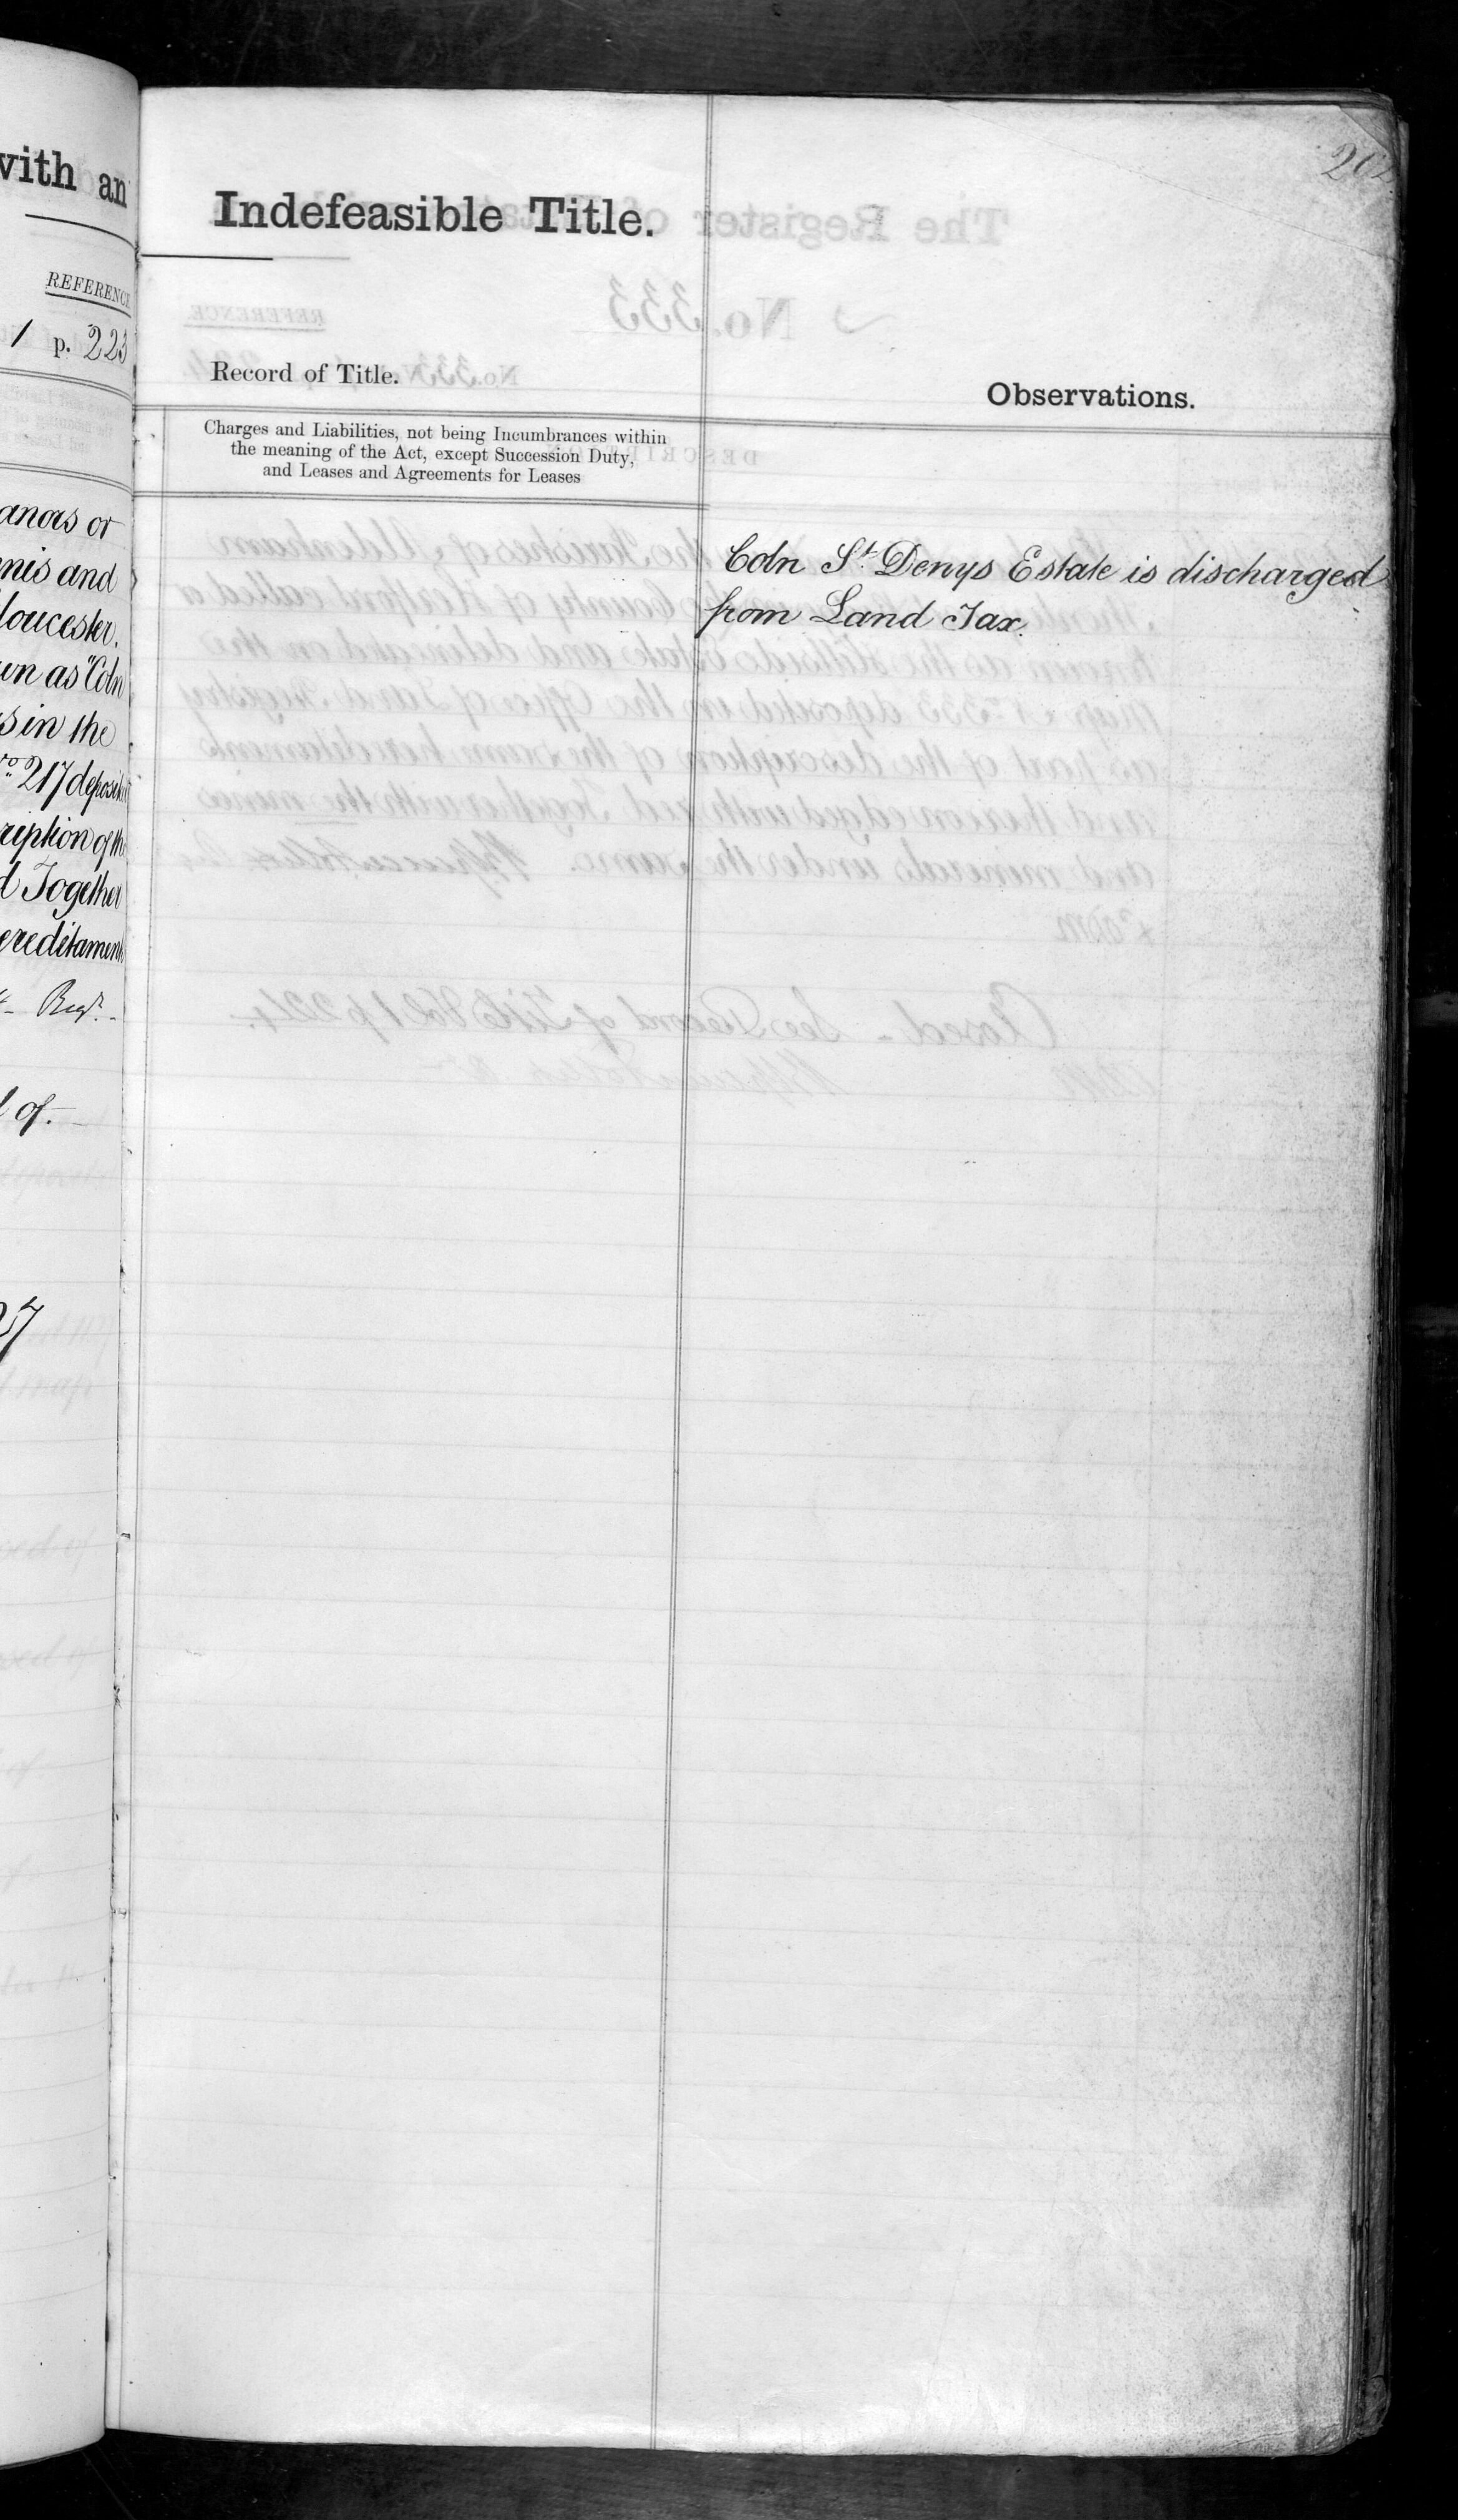 with an
REFERENCE
1 p. 223
anors or
nis and
loucester.
wn as "Coln
s in the
ro 217 deposited
ription of the
d Together
ereditaments
Regr.
of.
27
Indefeasible Title.
Record of Title.
Charges and Liabilities, not being Incumbrances within
the meaning of the Act, except Succession Duty,
and Leases and Agreements for Leases
Observations.
Coln St. Denys Estate is discharged
from Land Tax.